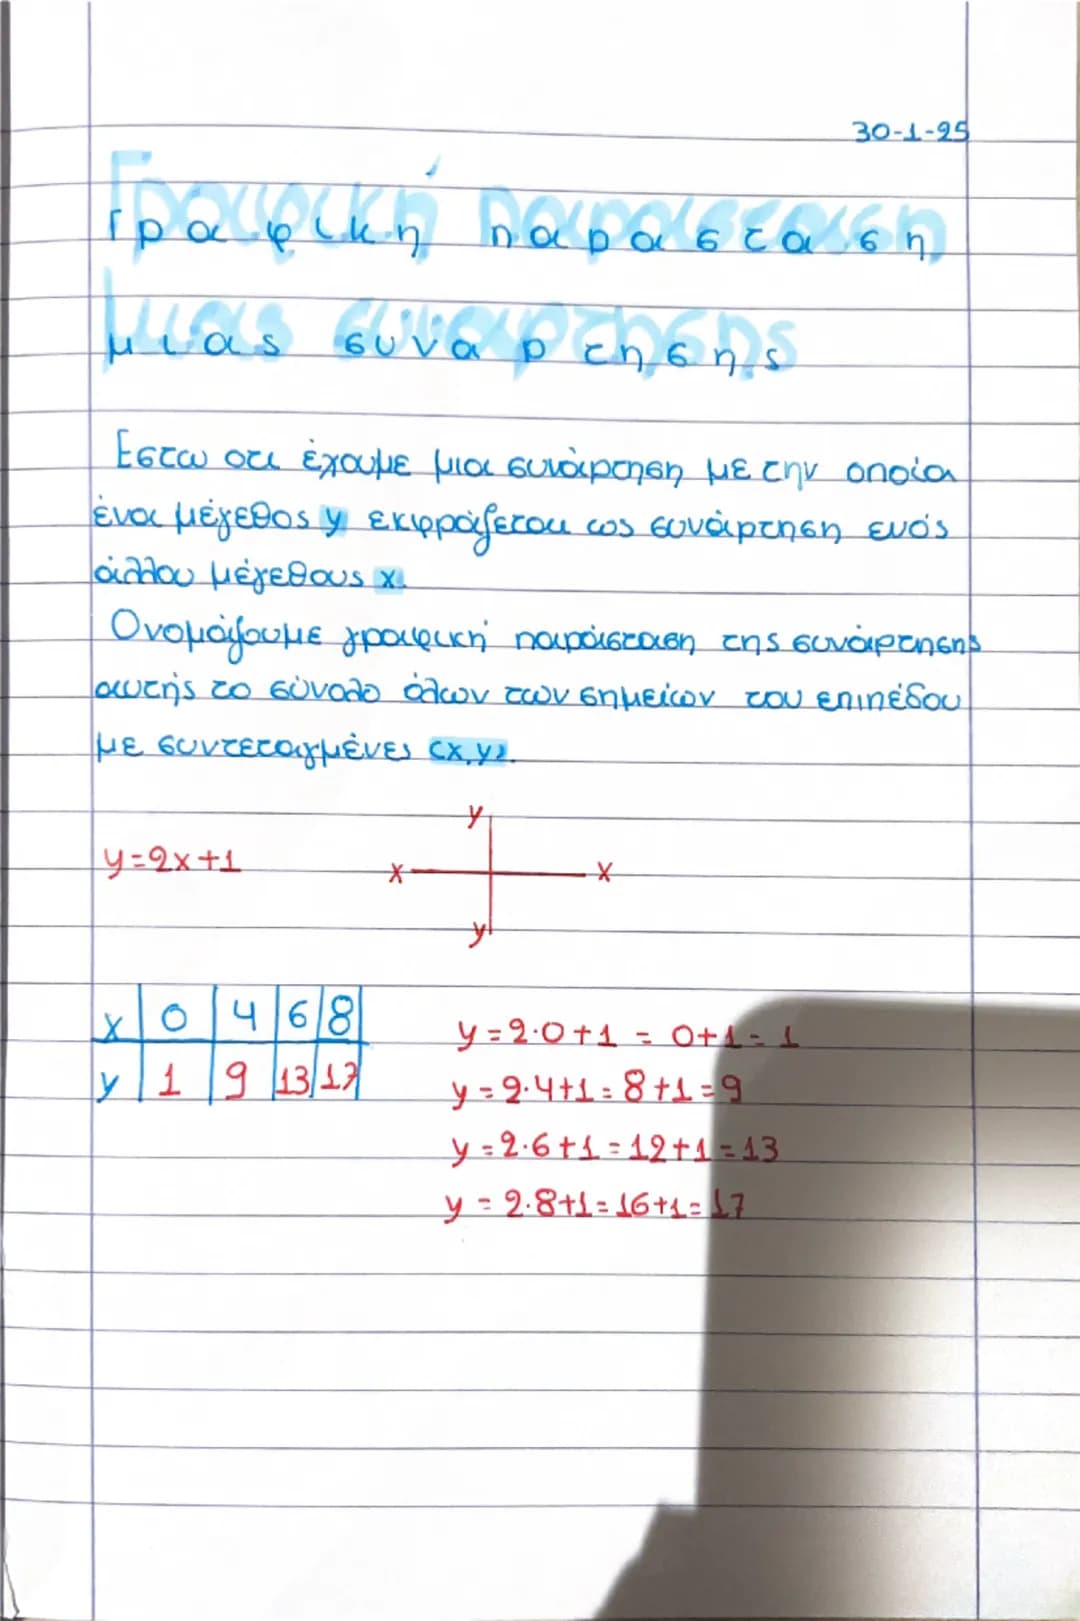 30-1-25
Γραφική παράσταση
μιας συναρτησης
Έστω οτι έχουμε μια συνάρτηση με την οποία
ένα μέγεθος y εκφράζεται ως συνάρτηση ενός
άλλου μέγεθους x.
Ονομάζουμε γραφική παράσταση της συνάρτησης
αυτής το σύνολο όλων των σημείων του επιπέδου
με συντεταγμένες (x,y).
y
y=2x+1 x x
y
x 0 4 6 8
y 1 9 13 17
y=2·0+1 = 0+1=1
y=2·4+1=8+1=9
y=2·6+1=12+1=13
y=2·8+1=16+1=17